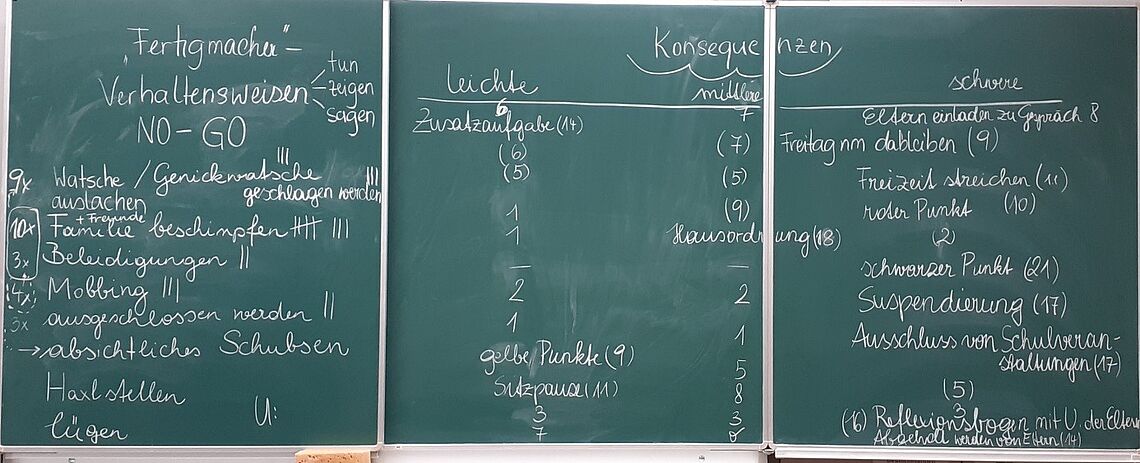 „Fertigmacher"-
Verhaltensweisen
tun
zeigen
sagen
NO-GO
III
9x Watsche / Genickwatsche / III
geschlagen werden
auslachen
+ Freunde
10x Familie beschimpfen IIII III
3x Beleidigungen II
4x Mobbing III
3x ausgeschlossen werden II
→ absichtliches Schubsen
Haxlstellen
lügen
U:
Konsequenzen
leichte mittlere schwere
6 7 Eltern einladen zu Gespräch 8
Zusatzaufgabe (14)
(6) (7) Freitag nm dableiben (9)
(5) (5) Freizeit streichen (11)
1 (9) roter Punkt (10)
1 Hausordnung (18) (2)
— — schwarzer Punkt (21)
2 2 Suspendierung (17)
1 1 Ausschluss von Schulveran-
staltungen (17)
gelbe Punkte (9) 5
Sitzpause (11) 8 (5)
3 3 3
(16) Reflexionsbogen mit U. der Eltern
7 Abgeholt werden von Eltern (14)